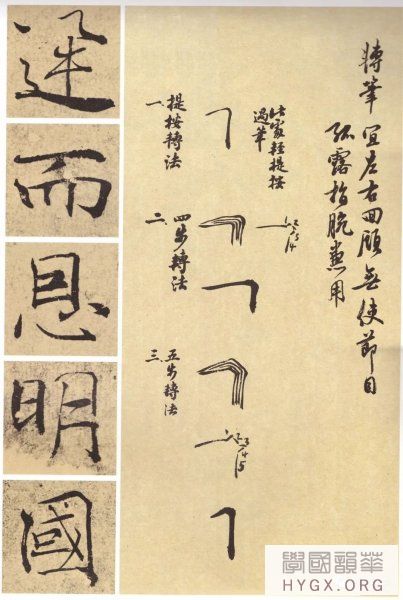 轉筆 宜左右回顧無使節目
孤露指腕兼用
輕提按
過筆
一、提按轉法
二、四步轉法
1 2 3 4
三、五步轉法
1 2 3 4 5
而
明
國
學國韻華
HYGX.ORG